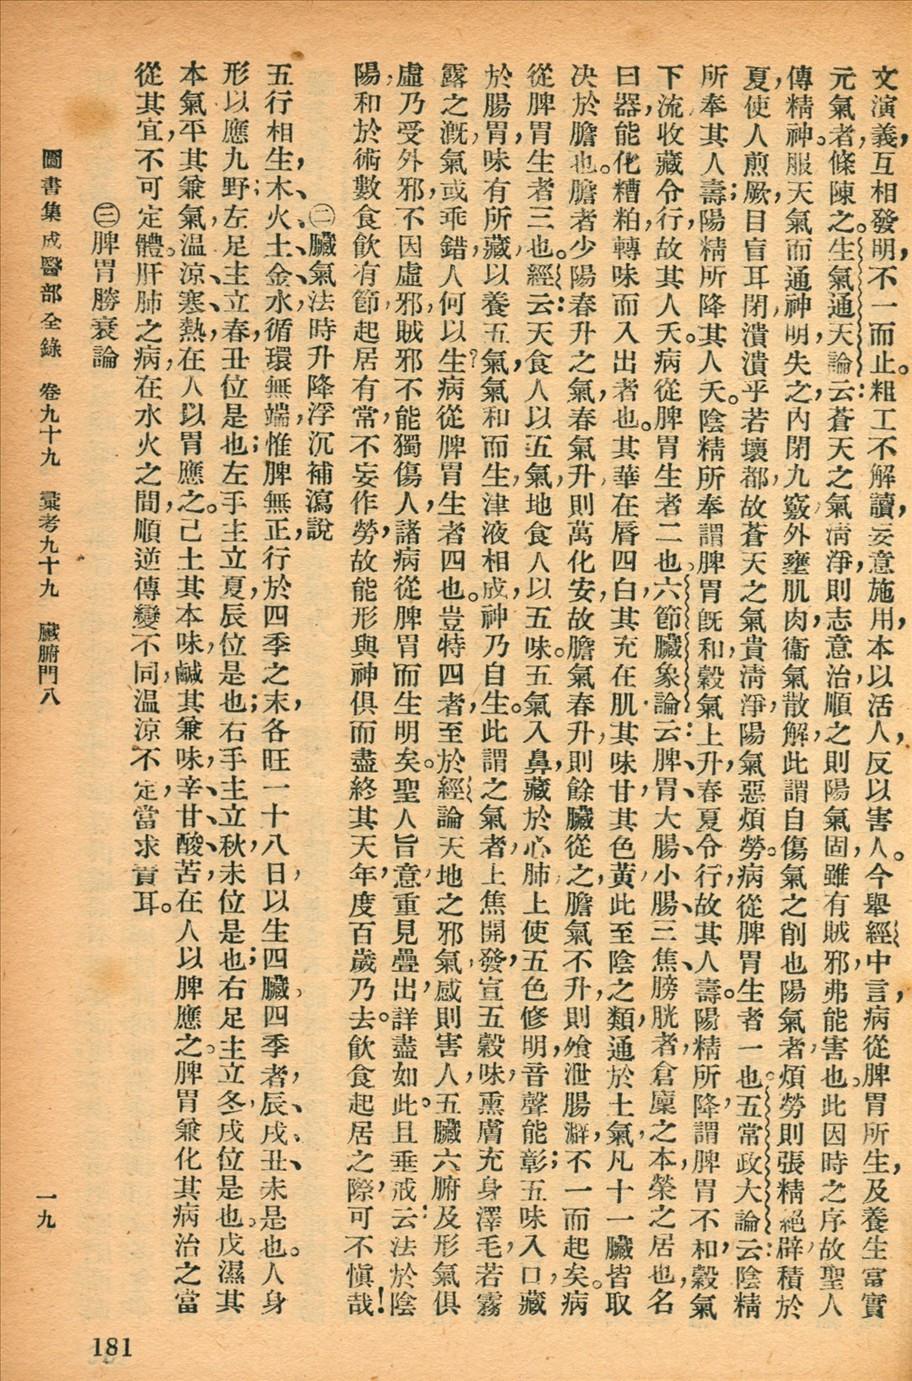 文演義，互相發明，不一而止。粗工不解讀，妄意施用，本以活人，反以害人。今舉經中言病從脾胃所生，及養生當實
元氣者，條陳之。生氣通天論云：蒼天之氣，清淨則志意治，順之則陽氣固，雖有賊邪，弗能害也，此因時之序。故聖人
傳精神，服天氣而通神明。失之，內閉九竅，外壅肌肉，衞氣散解，此謂自傷，氣之削也。陽氣者，煩勞則張，精絕，辟積於
夏，使人煎厥，目盲耳閉，潰潰乎若壞都。故蒼天之氣貴清淨，陽氣惡煩勞。病從脾胃生者一也。五常政大論云：陰精
所奉其人壽；陽精所降其人夭。陰精所奉，謂脾胃既和，穀氣上升，春夏令行，故其人壽。陽精所降，謂脾胃不和，穀氣
下流，收藏令行，故其人夭。病從脾胃生者二也。六節臟象論云：脾、胃、大腸、小腸、三焦、膀胱者，倉廩之本，榮之居也，名
曰器，能化糟粕，轉味而入出者也。其華在唇四白，其充在肌，其味甘，其色黃，此至陰之類，通於土氣，凡十一臟皆取
決於膽也。膽者，少陽春升之氣，春氣升則萬化安，故膽氣春升，則餘臟從之，膽氣不升，則飧泄腸澼，不一而起矣。病
從脾胃生者三也。經云：天食人以五氣，地食人以五味。五氣入鼻，藏於心肺，上使五色修明，音聲能彰；五味入口，藏
於腸胃，味有所藏，以養五氣，氣和而生，津液相成，神乃自生。此謂之氣者，上焦開發，宣五穀味，熏膚充身澤毛，若霧
露之溉，氣或乖錯，人何以生？病從脾胃生者四也。豈特四者，至於經論天地之邪氣，感則害人，五臟六腑及形氣俱
虛，乃受外邪，不因虛邪，賊邪不能獨傷人，諸病從脾胃而生明矣。聖人旨意，重見疊出，詳盡如此。且垂戒云：法於陰
陽，和於術數，食飲有節，起居有常，不妄作勞，故能形與神俱，而盡終其天年，度百歲乃去。飲食起居之際，可不愼哉！
㊁臟氣法時升降浮沉補瀉說
五行相生，木、火、土、金、水，循環無端，惟脾無正，行於四季之末，各旺一十八日，以生四臟。四季者，辰、戌、丑、未是也。人身
形以應九野；左足主立春，丑位是也；左手主立夏，辰位是也；右手主立秋，未位是也；右足主立冬，戌位是也。戊濕其
本氣平，其兼氣溫、涼、寒、熱，在人以胃應之。己土其本味鹹，其兼味辛、甘、酸、苦，在人以脾應之。脾胃兼化，其病治之當
從其宜，不可定體。肝肺之病，在水火之間，順逆傳變不同，溫涼不定，當求責耳。
㊂脾胃勝衰論
圖書集成醫部全錄　卷九十九　彙考九十九　臟腑門八　一九
181